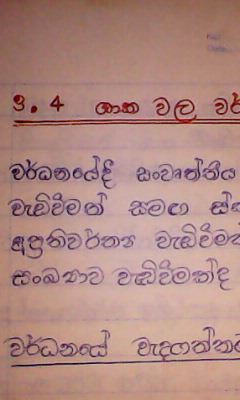 3.4 ශාක වල වර්
වර්ධනයේදී සංවෘත්තීය
වැඩිවීමත් සමඟ
අප්‍රතිවර්ත්‍ය වැඩිවීමක්
සංඛ්‍යාව වැඩිවීමක්ද
වර්ධනයේ වැදගත්කම